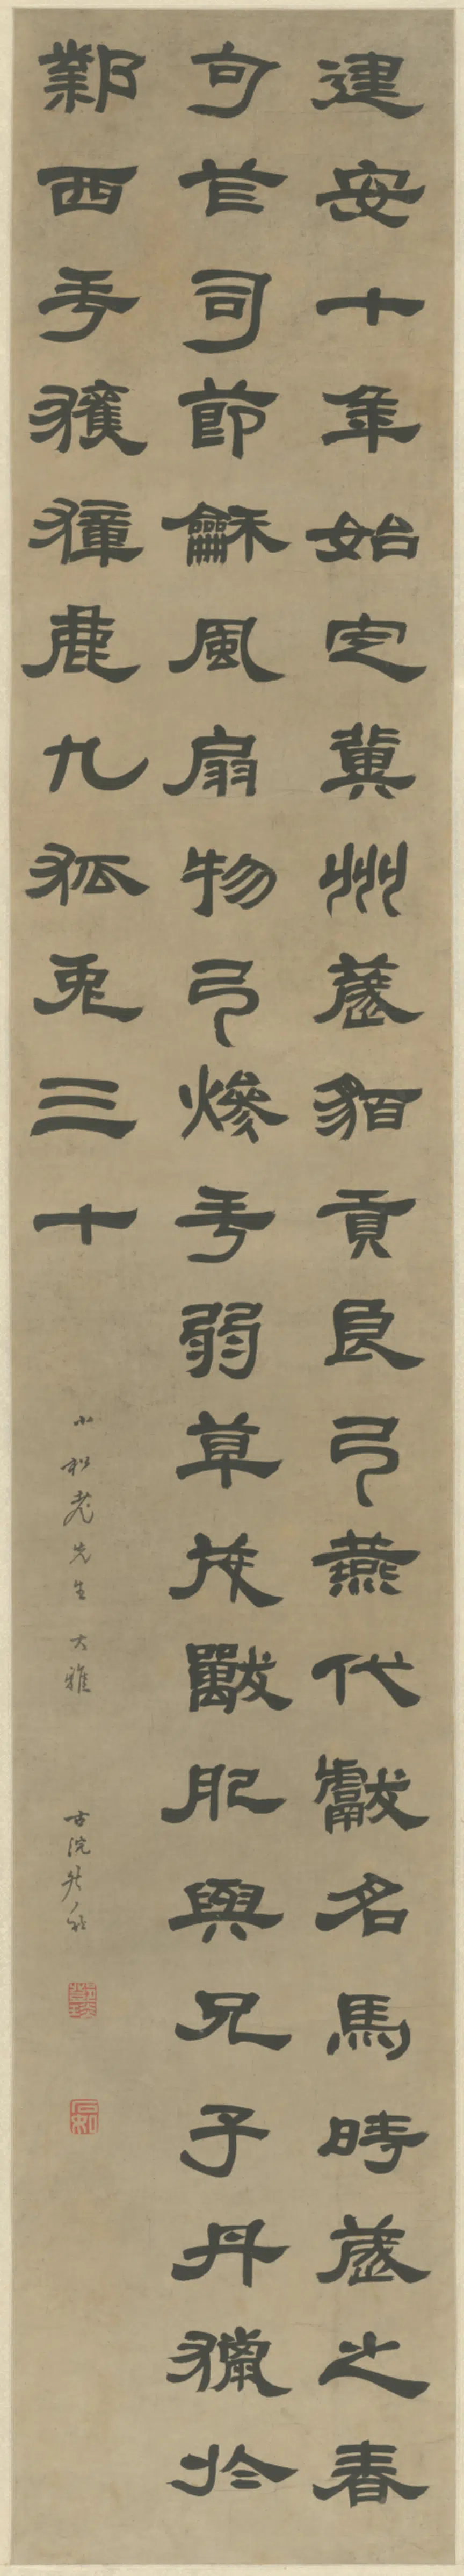 建安十年始定冀州薉貊貢良弓燕代獻名馬時歲之春
句芒司節龢風扇物弓燥手弱草茂獸肥與兄子丹獵於
鄴西手獲獐鹿九狐兔三十
小松老先生大雅
古浣鄧石如
石如